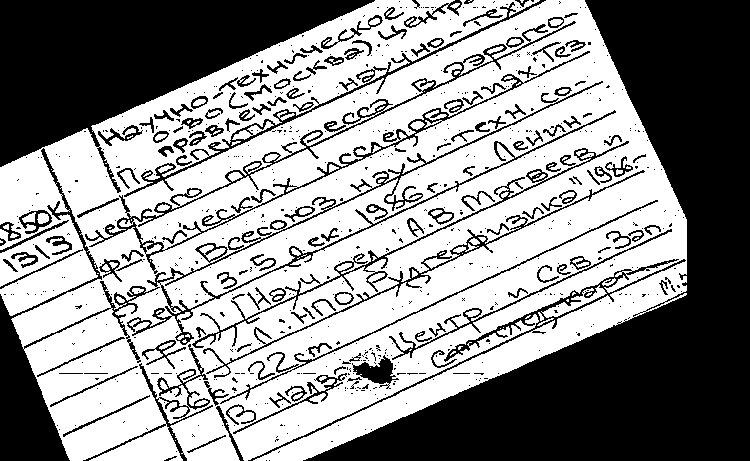 Научно-техническое
о-во (Москва). Центра
правление.
Перспективы научно-техни
ческого прогресса в аэрогео-
физических исследованиях: Тез.
докл. Всесоюз. науч.-техн. со-
вещ. (3-5 дек. 1986 г., г. Ленин-
град); [Науч. ред.: А.В. Матвеев и
др.]. - Л.: НПО "Рудгеофизика", 1986.-
36 с.; 22 см.
В надзаг. Центр. и Сев.-Зап.
См. след. карт.
8.50К
1313